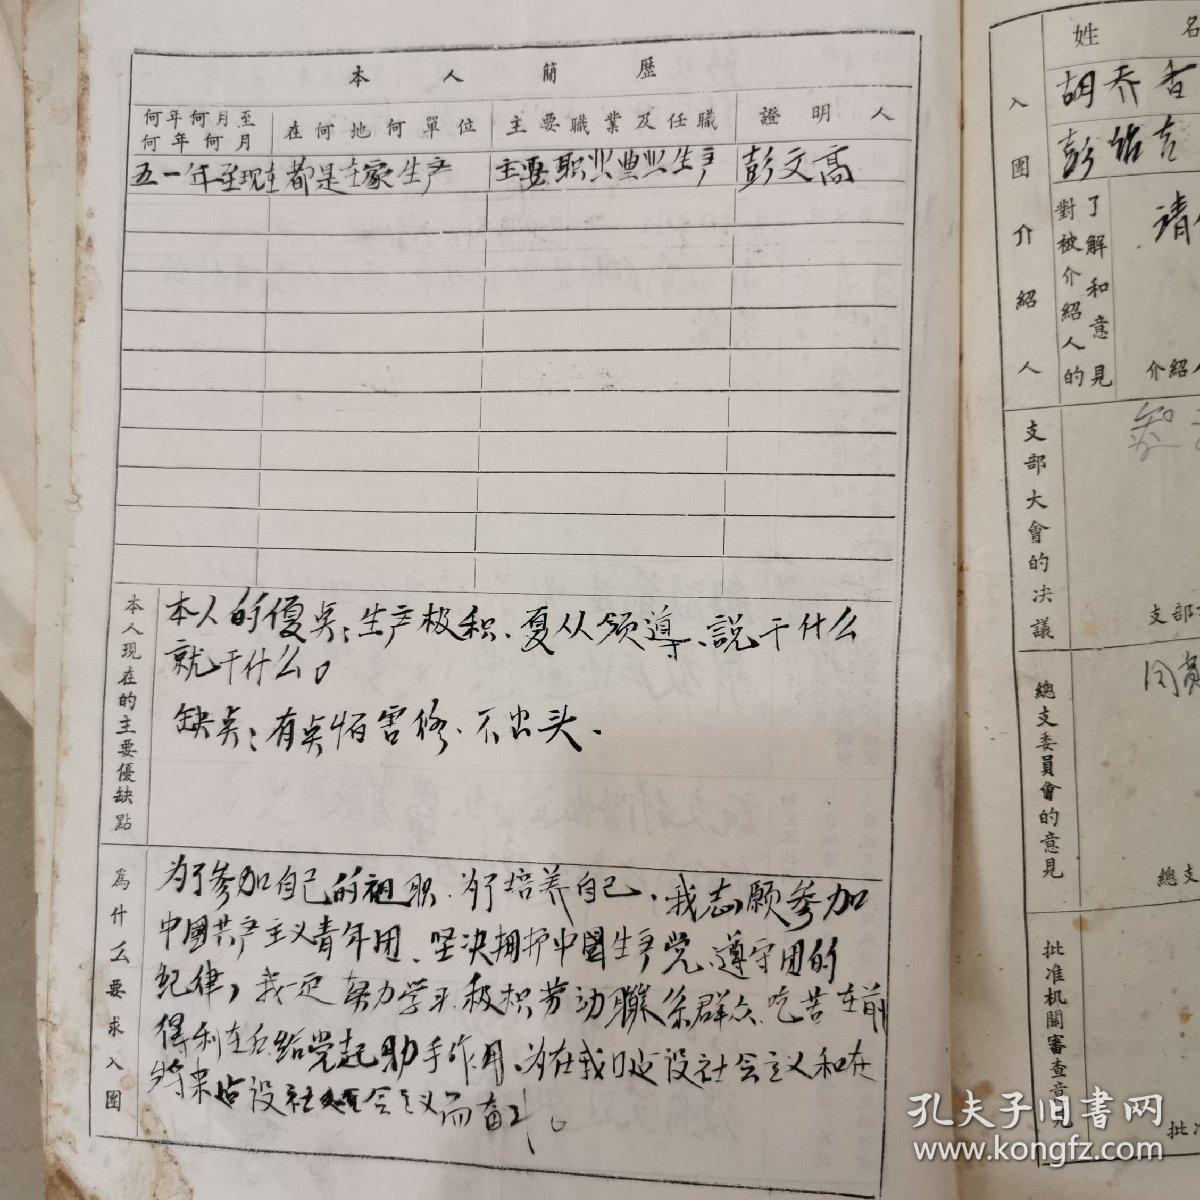 本人簡歷
何年何月至何年何月 在何地何單位 主要職業及任職 證明人
五一年至现在 都是在家生产 主要职业业生产 彭文高
本人現在的主要優缺點
本人的優点：生产极积、复从领導、説干什么
就干什么。
缺点：有点怕害修、不出头.
為什么要求入團
为了参加自己的祖职.为了培养自己，我志願参加
中國共产主义青年团、坚决拥护中國生产党、遵守团的
纪律，我一定努力学习.极积劳动聯系群众.吃苦在前
得利在后给党起助手作用、为在我口
设社会主义和在
将来
设社
会主义而奋斗。
姓名
入團介紹人
胡乔香
彭
對被介紹人的了解和意見
請
介紹人
支部大會的決議
支部
總支委員會的意見
同意
總支
批准机關審查意見
批准
孔夫子旧书网
www.kongfz.com